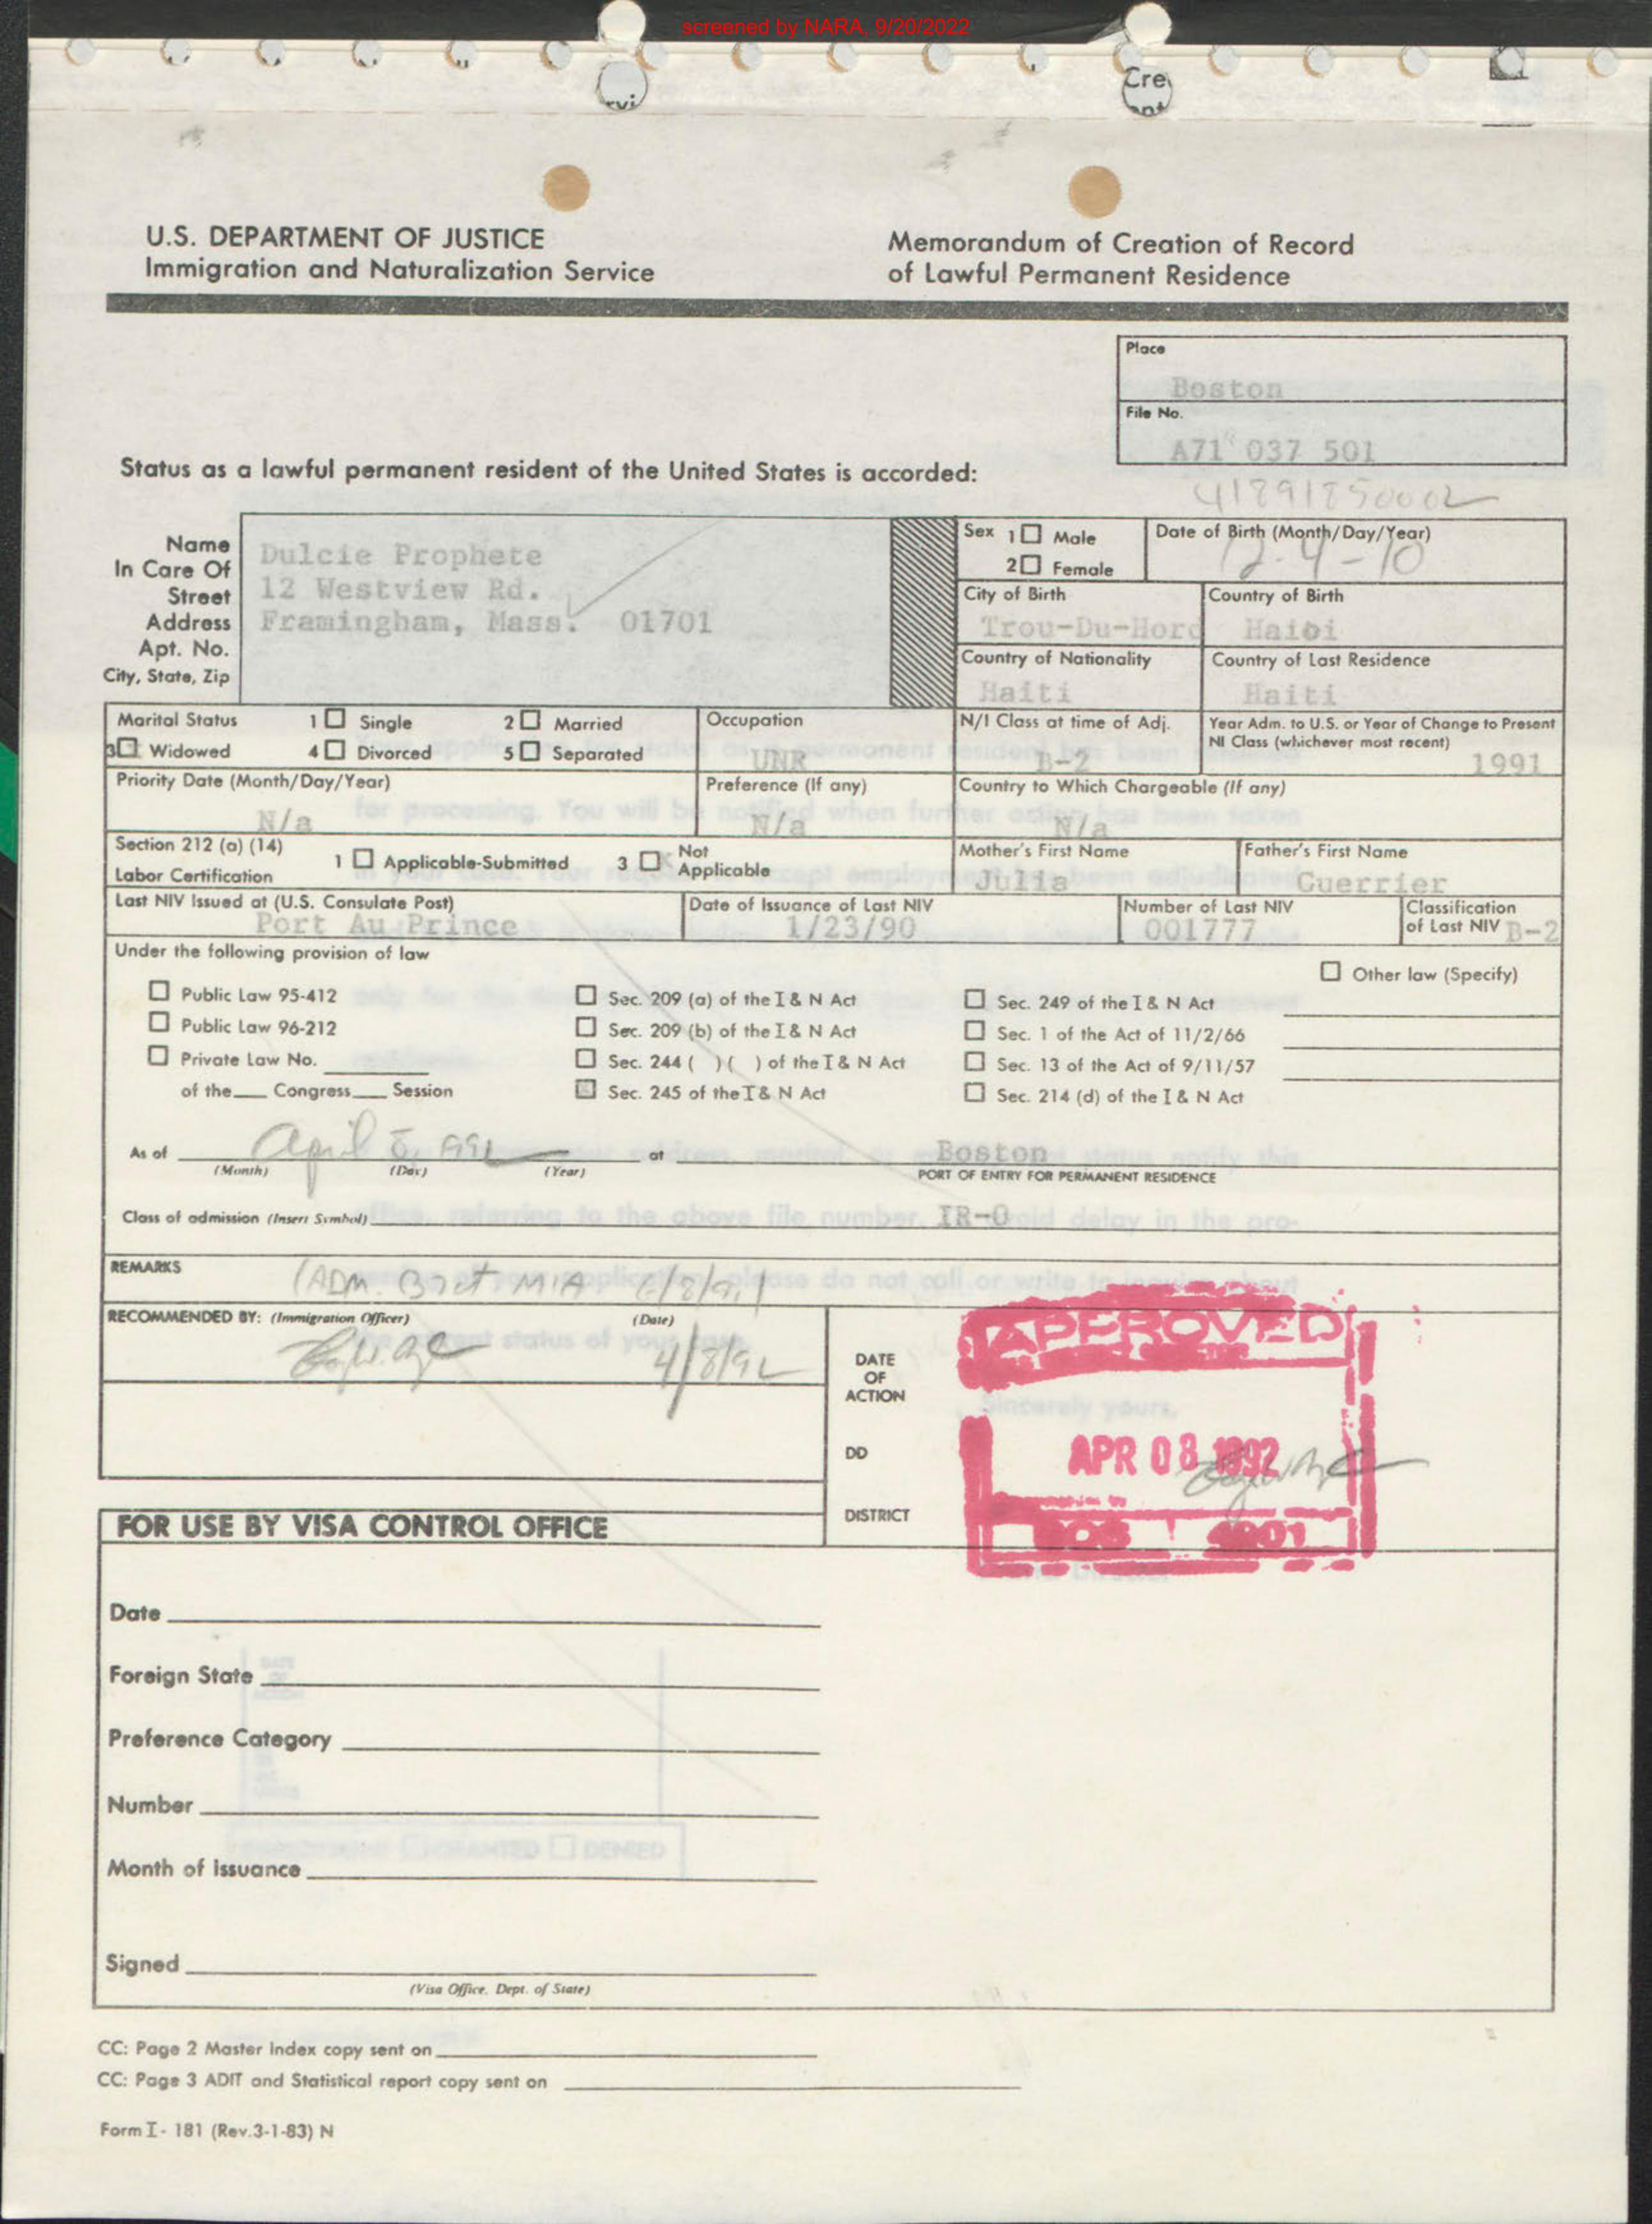 screened by NARA, 9/20/2022
Cre
U.S. DEPARTMENT OF JUSTICE
Immigration and Naturalization Service
Memorandum of Creation of Record
of Lawful Permanent Residence
Place
Boston
File No.
A71 037 501
Status as a lawful permanent resident of the United States is accorded:
Name
In Care Of
Street
Address
Apt. No.
City, State, Zip
Dulcie Prophete
12 Westview Rd.
Framingham, Mass. 01701
Sex 1 Male
2 Female
Date of Birth (Month/Day/Year)
12-4-10
City of Birth
Trou-Du-Nord
Country of Birth
Haiti
Country of Nationality
Haiti
Country of Last Residence
Haiti
Marital Status 1 Single 2 Married
3 Widowed 4 Divorced 5 Separated
Occupation
UNR
N/I Class at time of Adj.
B-2
Year Adm. to U.S. or Year of Change to Present
NI Class (whichever most recent)
1991
Priority Date (Month/Day/Year)
N/a
Preference (If any)
N/a
Country to Which Chargeable (If any)
N/a
Section 212 (a) (14)
Labor Certification
1 Applicable-Submitted 3 Not Applicable
Mother's First Name
Julia
Father's First Name
Guerrier
Last NIV Issued at (U.S. Consulate Post)
Port Au Prince
Date of Issuance of Last NIV
1/23/90
Number of Last NIV
001777
Classification
of Last NIV B-2
Under the following provision of law
Public Law 95-412
Public Law 96-212
Private Law No.
of the Congress Session
Sec. 209 (a) of the I & N Act
Sec. 209 (b) of the I & N Act
Sec. 244 ( ) ( ) of the I & N Act
Sec. 245 of the I & N Act
Sec. 249 of the I & N Act
Sec. 1 of the Act of 11/2/66
Sec. 13 of the Act of 9/11/57
Sec. 214 (d) of the I & N Act
Other law (Specify)
As of April 8, 1992 at Boston
(Month) (Day) (Year)
PORT OF ENTRY FOR PERMANENT RESIDENCE
Class of admission (Insert Symbol) IR-0
REMARKS
(ADM. B2 at MIA 6/8/91
RECOMMENDED BY: (Immigration Officer) (Date)
4/8/92
DATE
OF
ACTION
DD
DISTRICT
APPROVED
APR 08 1992
BOS
FOR USE BY VISA CONTROL OFFICE
Date
Foreign State
Preference Category
Number
Month of Issuance
Signed
(Visa Office, Dept. of State)
CC: Page 2 Master Index copy sent on
CC: Page 3 ADIT and Statistical report copy sent on
Form I-181 (Rev.3-1-83) N